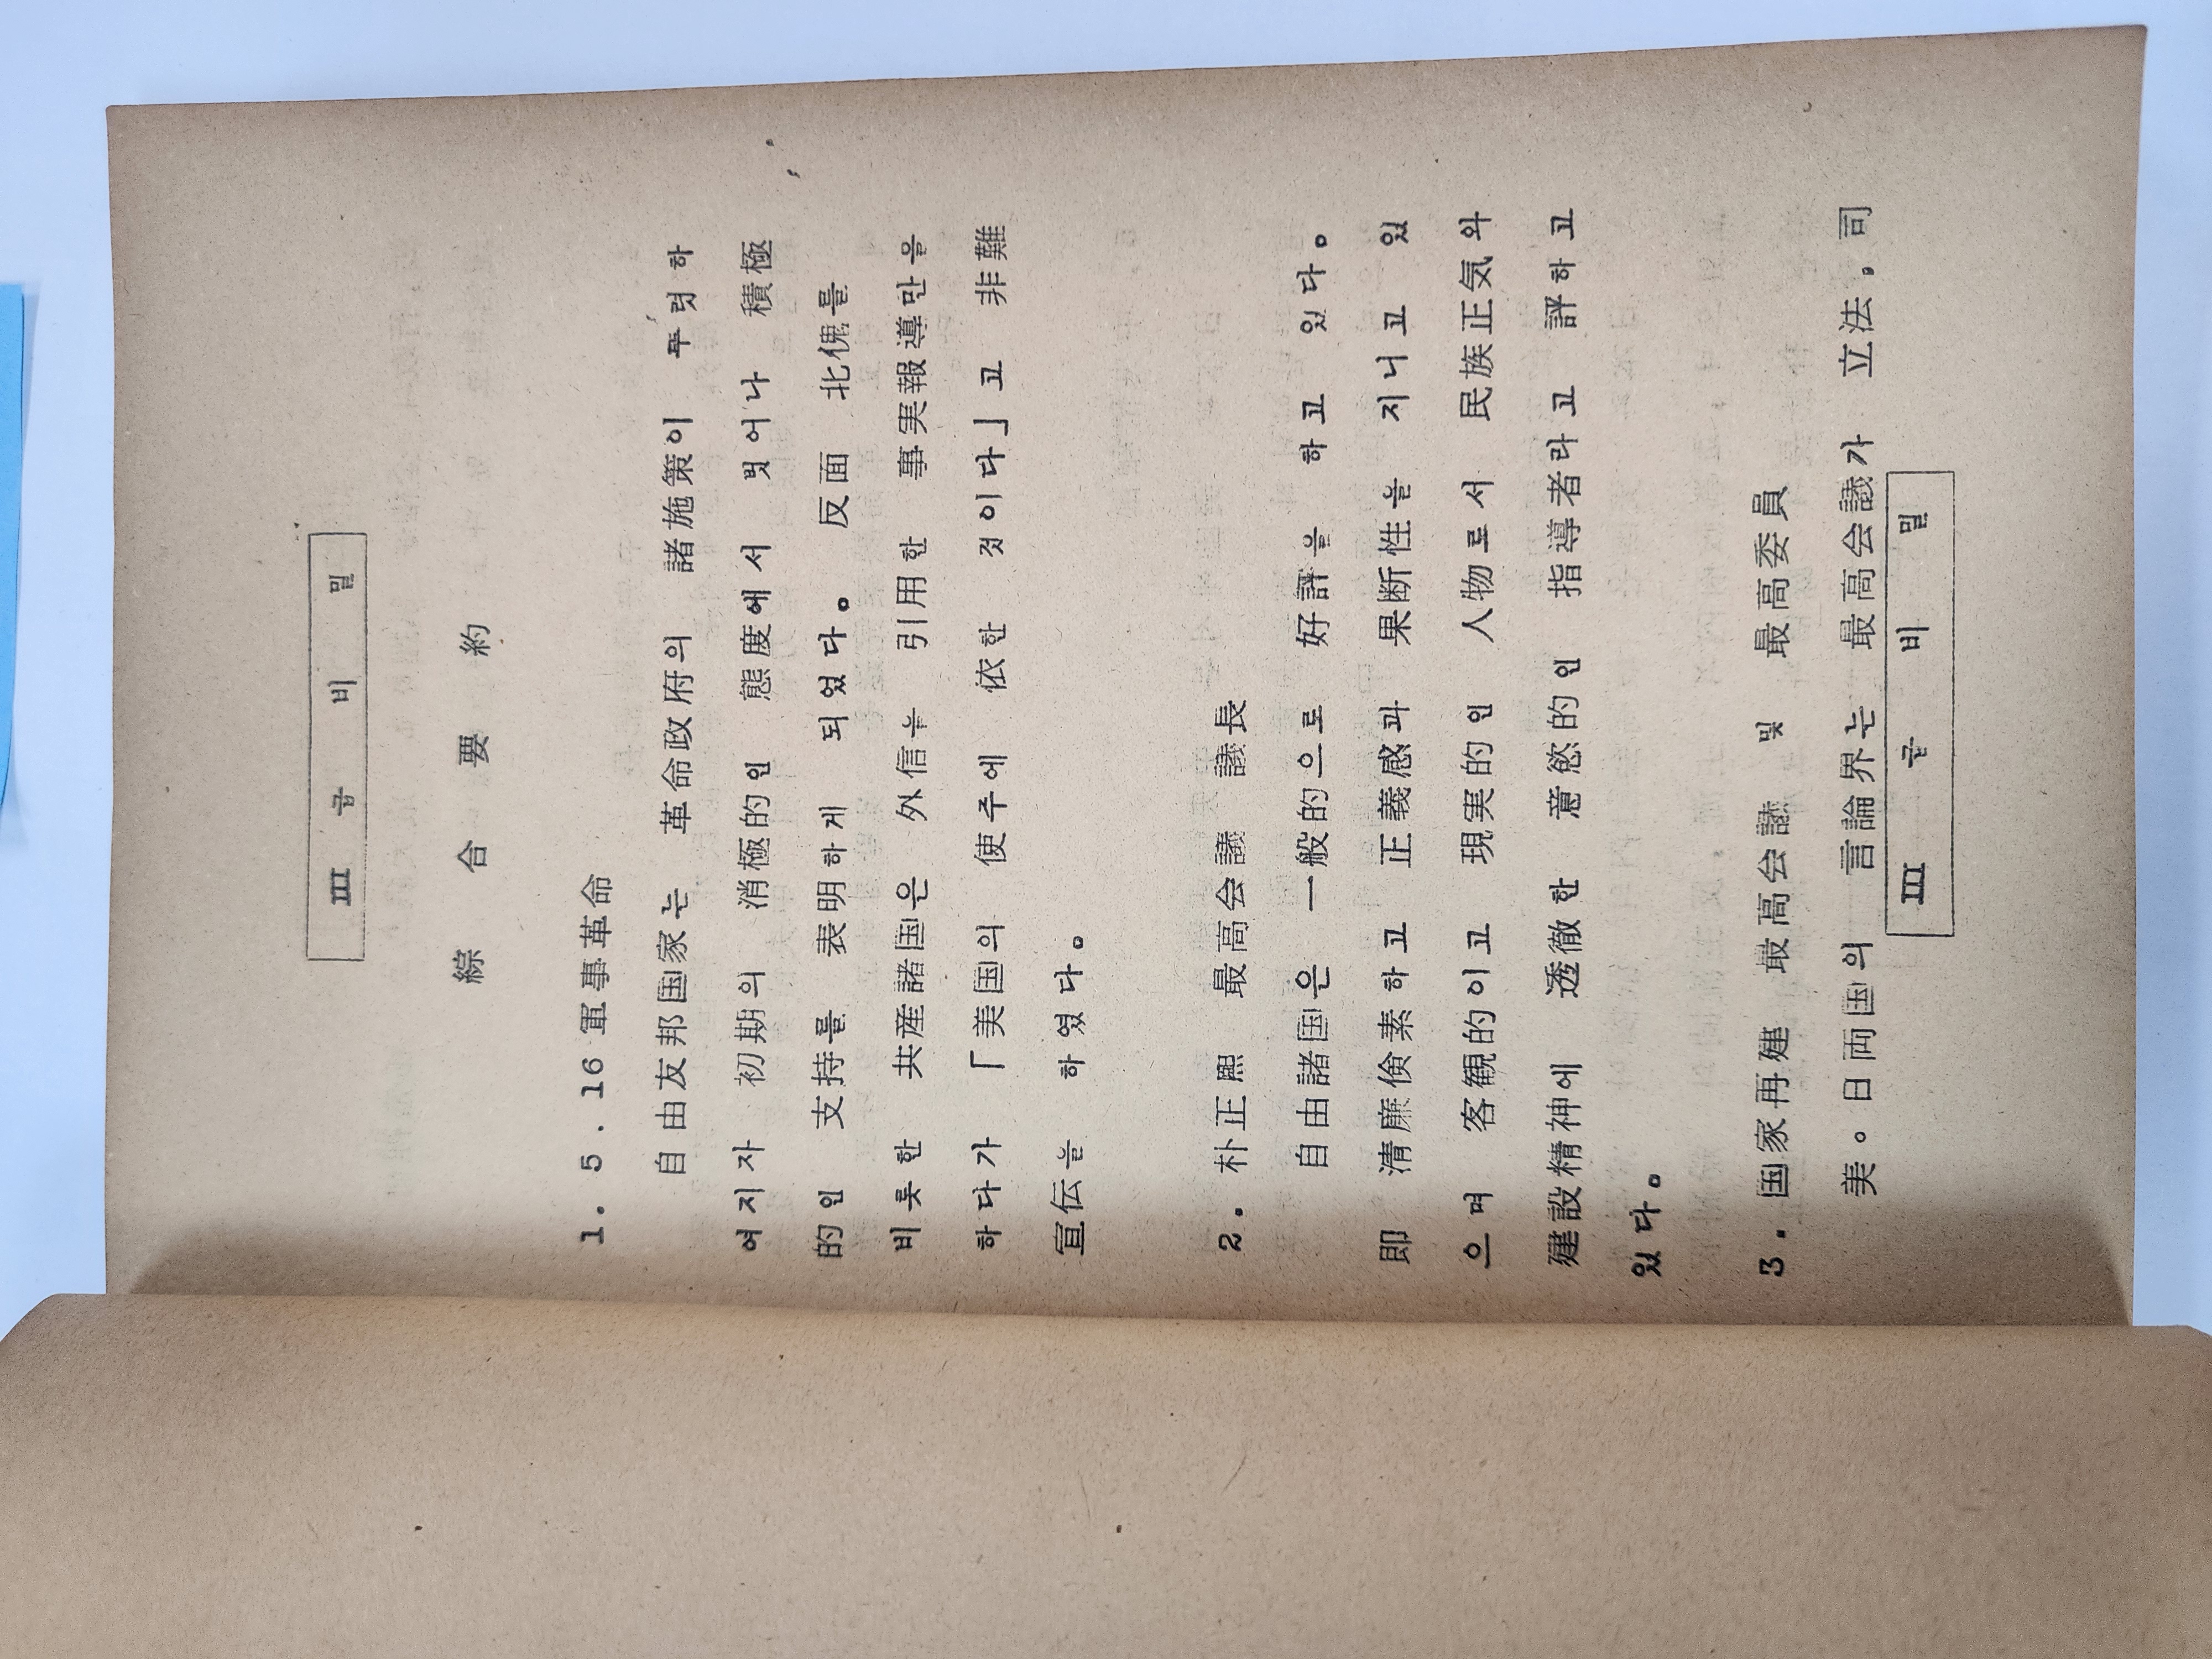 III 급 비 밀
綜 合 要 約
1. 5.16 軍事革命
自由友邦国家는 革命政府의 諸施策이 뚜렷하
여지자 初期의 消極的인 態度에서 벗어나 積極
的인 支持를 表明하게 되었다。 反面 北傀를
비롯한 共産諸国은 外信을 引用한 事実報導만을
하다가 「美国의 使주에 依한 것이다」고 非難
宣伝을 하였다。
2. 朴正熙 最高会議 議長
自由諸国은 一般的으로 好評을 하고 있다。
即 清廉倹素하고 正義感과 果断性을 지니고 있
으며 客観的이고 現実的인 人物로서 民族正気와
建設精神에 透徹한 意慾的인 指導者라고 評하고
있다。
3. 国家再建 最高会議 및 最高委員
美。日両国의 言論界는 最高会議가 立法, 司
III 급 비 밀